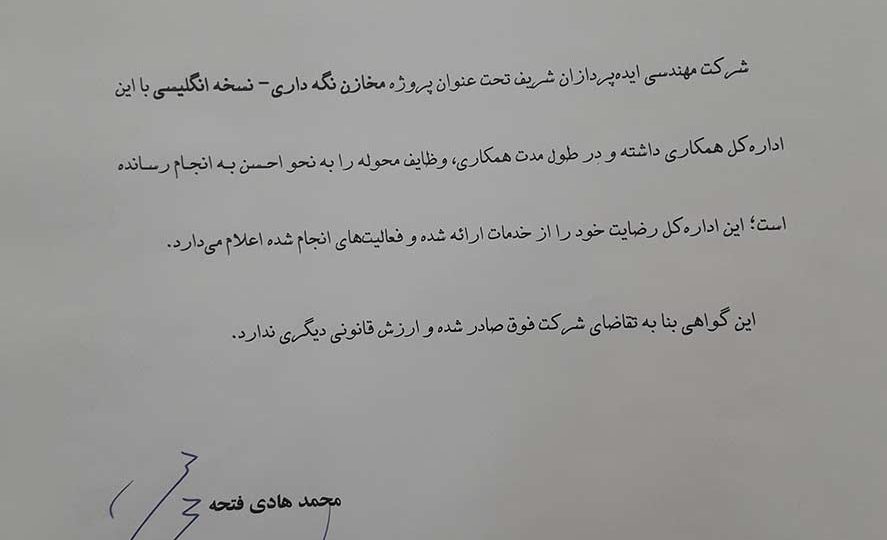 شرکت مهندسی ایده‌پردازان شریف تحت عنوان پروژه مخازن نگه داری- نسخه انگلیسی با این
اداره‌کل همکاری داشته و در طول مدت همکاری، وظایف محوله را به نحو احسن به انجام رسانده
است؛ این اداره‌کل رضایت خود را از خدمات ارائه شده و فعالیت‌های انجام شده اعلام می‌دارد.
این گواهی بنا به تقاضای شرکت فوق صادر شده و ارزش قانونی دیگری ندارد.
محمد هادی فتحه